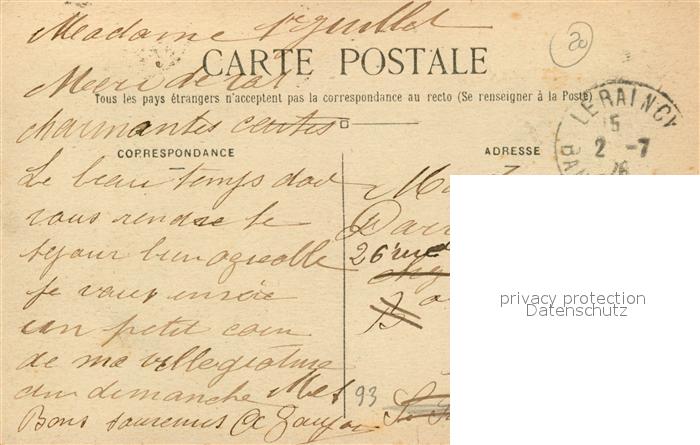 Madame Guillot
CARTE POSTALE
Merci de vos
Tous les pays étrangers n'acceptent pas la correspondance au recto (Se renseigner à la Poste)
charmantes cartes
CORRESPONDANCE
Le beau temps doit
vous rendre le
sejour bien agreable
Je vous envoie
un petit coin
de ma villegiature
du dimanche
Bons souvenirs
ADRESSE
26 rue
93
20
LE RAINCY
15
2 -7
privacy protection
Datenschutz